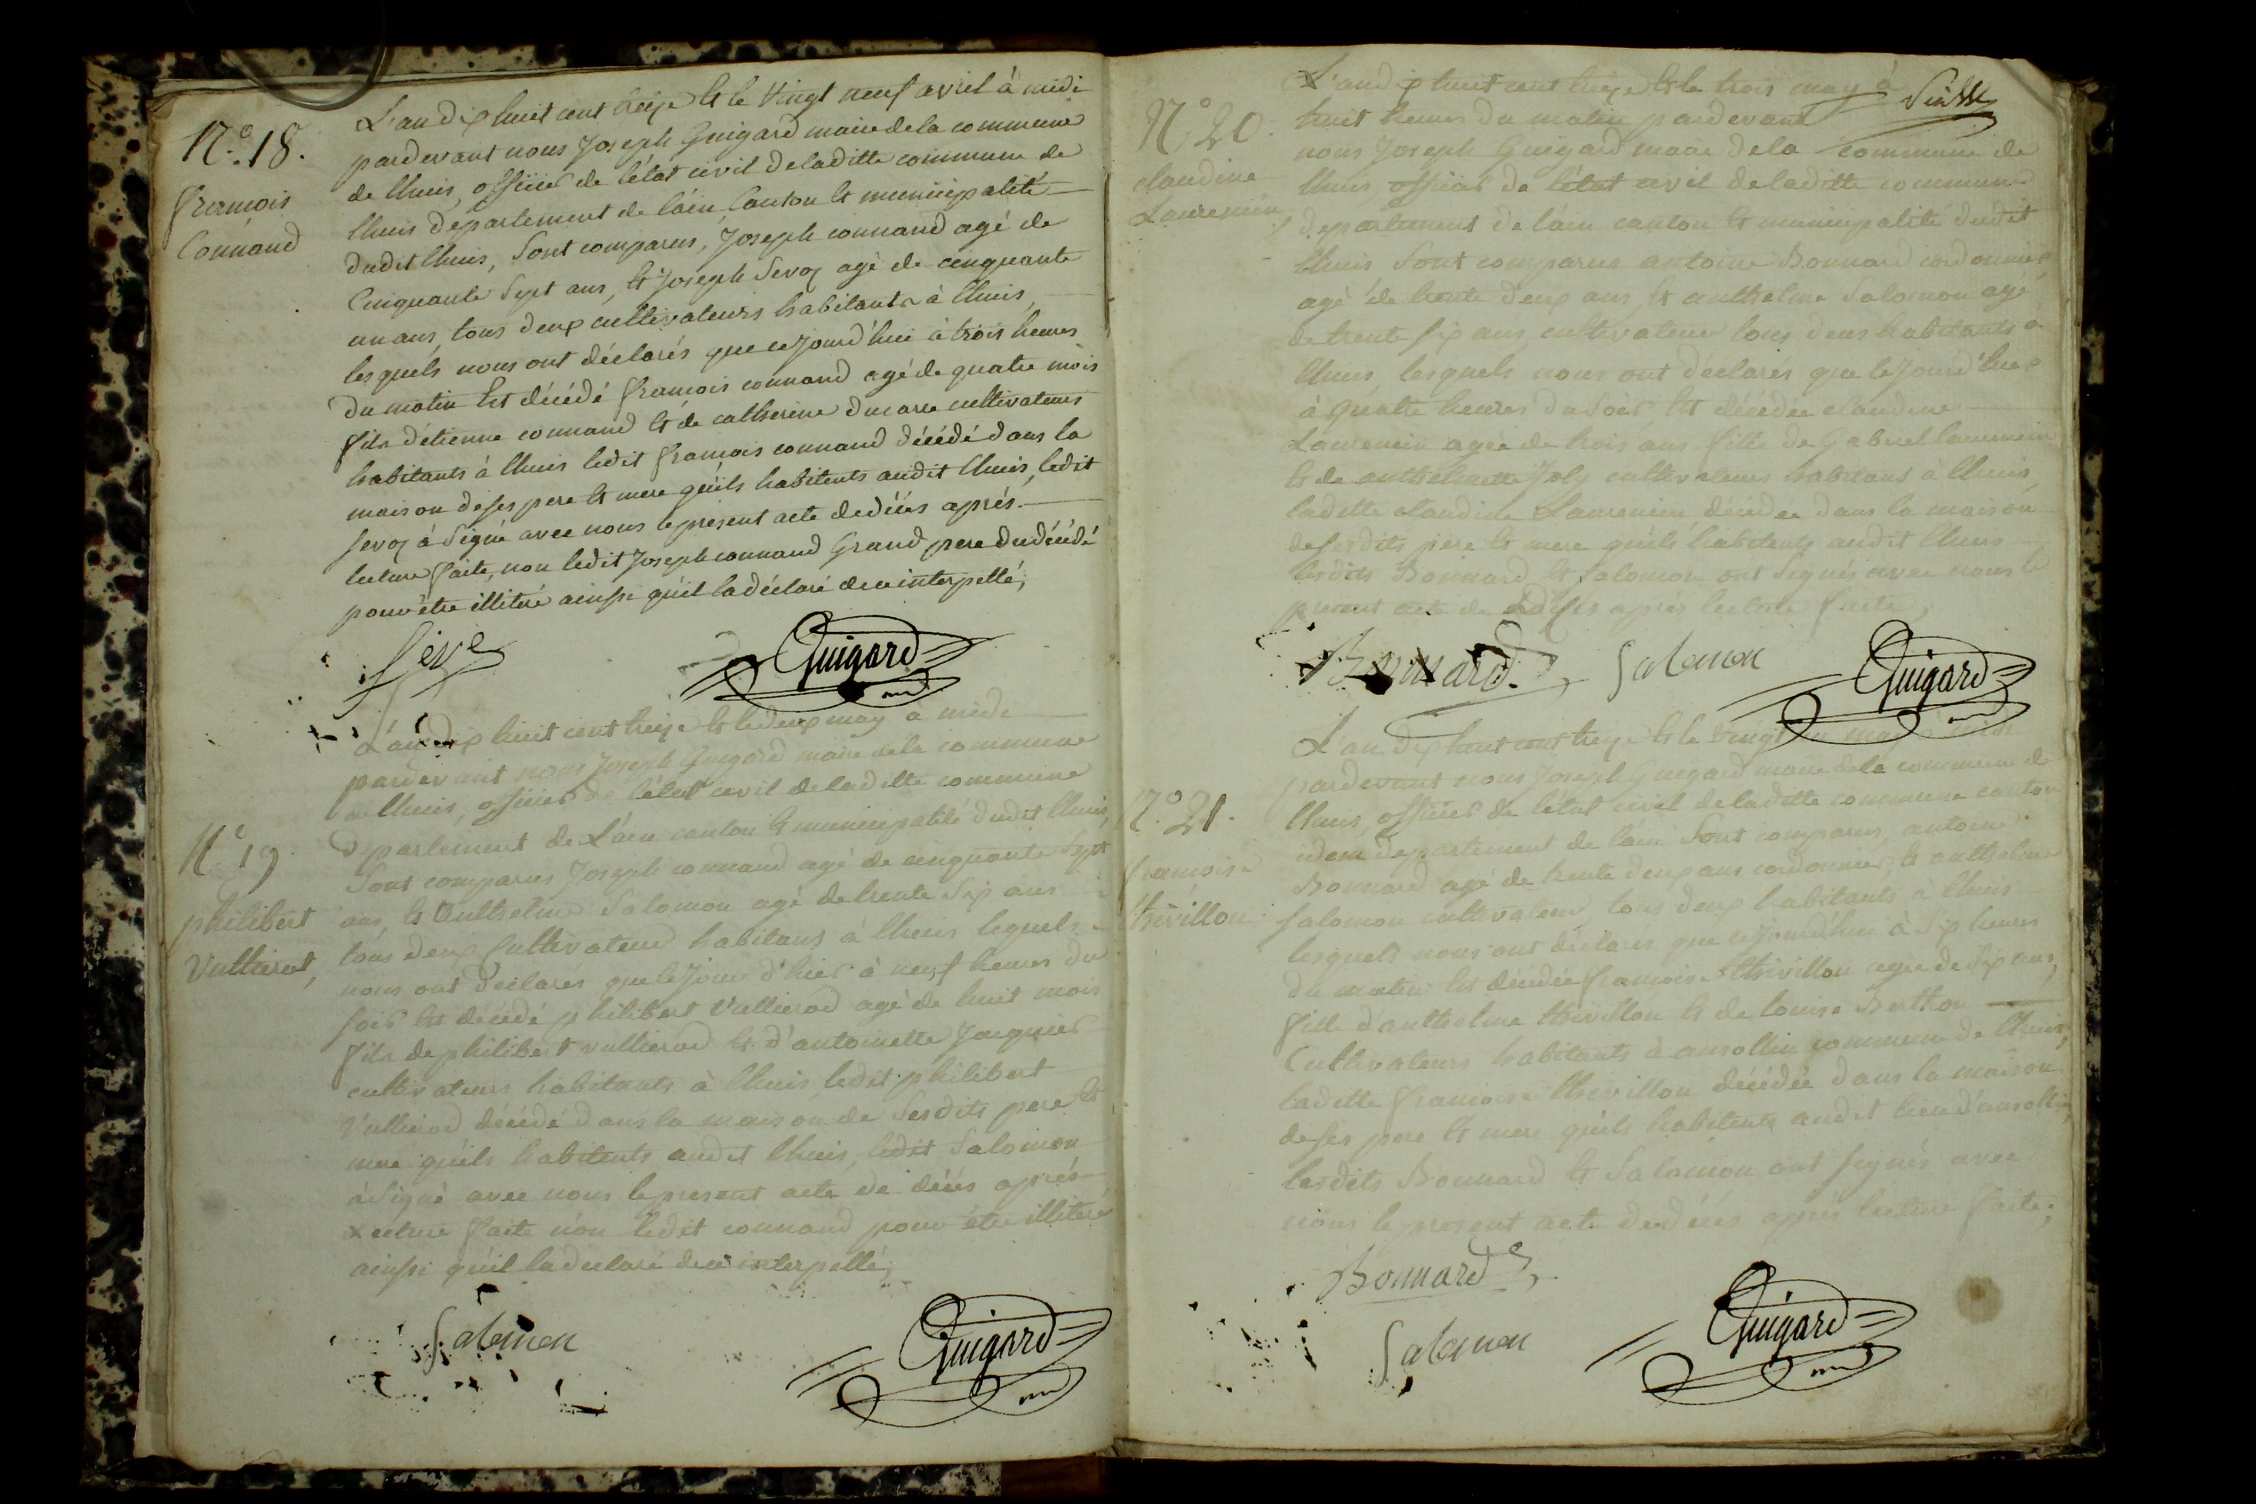 N.º 18.
françois
Connand
L'an dix huit cent treize et le Vingt neuf avril à midi
pardevant nous Joseph Guigard maire de la commune
de lhuis, officier de l'état civil de laditte commune de
lhuis département de l'ain, Canton et municipalité
dudit lhuis, Sont comparus, Joseph connand agé de
Cinquante Sept ans, et Joseph Sevoz agé de cinquante
un ans, tous deux cultivateurs habitants à lhuis,
lesquels nous ont déclarés que cejourd'hui à trois heures
du matin Est décédé françois connand agé de quatre mois
fils d'étienne connand et de catherine ducarre cultivateurs
habitants à lhuis ledit françois connand décédé dans la
maison de ses pere et mere qu'ils habitents audit lhuis, ledit
Sevoz à Signé avec nous le present acte de décés aprés
lecture faite, non ledit Joseph connand Grand pere du décédé
pour être illitéré ainsi qu'il la déclaré de ce interpellé,
Guigard
N.º 19
philibert
Vullierod,
L'an dix huit cent treize et le deux may à midi
pardevant nous Joseph Guigard maire de la commune
de lhuis, officier de l'état civil de laditte commune
département de L'ain canton et municipalité dudit lhuis,
Sont comparus Joseph connand agé de cinquante Sept
ans, et Anthelme Salomon agé de trente Six ans
tous deux Cultivateurs habitans à lhuis lequels
nous ont déclarés que le Jour d'hier à neuf heures du
soir Est décédé philibert Vullierod agé de huit mois
fils de philibert vullierod et d'antoinette Jacquier
cultivateurs habitants à lhuis ledit philibert
Vullierod décédé dans la maison de Sesdits pere et
mere qu'ils habitents audit lhuis, ledit Salomon
à Signé avec nous le present acte de décés aprés
Lecture faite non ledit connand pour être illiteré
ainsi qu'il la declaré de ce interpellé,
Salomon
Guigard
N.º 20.
claudine
Laurencin,
L'an dix huit cent treize et le trois may à
huit heures du matin pardevant
nous Joseph Guigard maire de la commune de
lhuis officier de l'état civil de laditte commune
département de l'ain canton et municipalité dudit
lhuis Sont comparus antoine Bonnard cordonnier
agé de trente deux ans, et anthelme Salomon agé
de trente six ans cultivateur tous deux habitants à
lhuis, lesquels nous ont déclarés que le Jourd'hier
à quatre heures du Soir Est décédée claudine
Laurencin agée de trois ans fille de Gabriel laurencin
et de anthelmette Joly cultivateurs habitans à lhuis,
laditte claudine Laurencin décédée dans la maison
de sesdits pere et mere qu'ils habitents audit lhuis
lesdits Bonnard et Salomon ont Signés avec nous le
present acte de décés aprés lecture faite,
Bonnard
Salomon
Guigard
N.º 21.
françoise
thévillon
L'an dix huit cent treize et le vingt un may
pardevant nous Joseph Guigard maire de la commune de
lhuis, officier de l'état civil de laditte commune canton
idem département de l'ain Sont comparus, antoine
Bonnard agé de trente deux ans cordonnier, et anthelme
Salomon cultivateur, tous deux habitants à lhuis
lesquels nous ont déclarés que cejourd'hui à Six heures
du matin Est décédée françoise thévillon agée de six ans,
fille d'anthelme thévillon et de louise Berthon
Cultivateurs habitants à ansollin commune de lhuis,
laditte françoise thévillon décédée dans la maison
de ses pere et mere qu'ils habitents audit lieu d'ansollin,
lesdits Bonnard et Salomon ont signés avec
nous le present acte de décés aprés lecture faite,
Bonnard
Salomon
Guigard